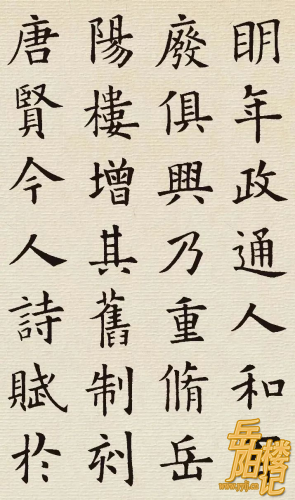 眀年政通人和
廢俱興乃重脩岳
陽樓增其舊制刻
唐賢今人詩賦於
岳阳楼记